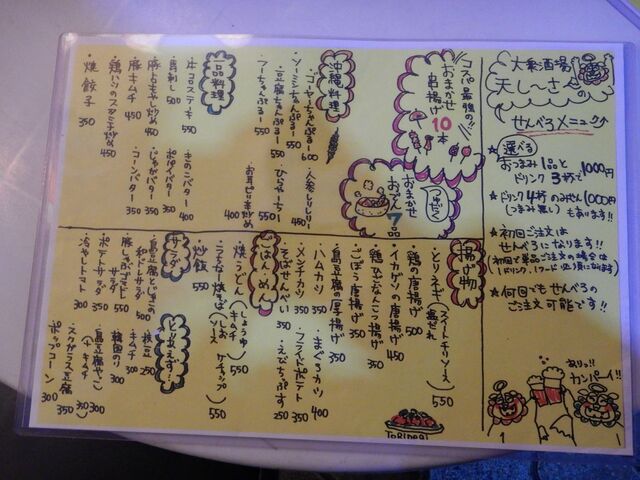 大衆酒場
天し〜さ〜の
せんべろメニュー
★選べる
おつまみ1品と
ドリンク3杯で1000円
★ドリンク4杯のみせん1000円
(つまみ無し)もあります!!
★初回ご注文は
せんべろになります!!
★何回でもせんべろの
ご注文可能です!!
ありっ!!
カンパーイ!!
コスパ最強の!!
おまかせ
串揚げ
10本
つけだく
おまかせ
おでん
7品
沖縄料理
・ゴーヤーちゃんぷるー 600
・ソーミンちゃんぷるー 550
・豆腐ちゃんぷるー 550
・フーちゃんぷるー 550
・人参しりしりー 450
・ひらやーちー 550
一品料理
・牛コロステーキ 550
・馬刺し 500
・豚もやし炒め 450
・豚キムチ 450
・鶏ハツのスタミナ炒め 450
・焼餃子 350
・きのこバター 400
・ポパイバター 350
・じゃがバター 350
・コーンバター 350
揚げ物
・とりネギ(スイートチリソース/塩だれ) 550
・鶏の唐揚げ 500
・イカゲソの唐揚げ 450
・鶏ひざなんこつ揚げ 350
・ごぼう唐揚げ 350
・島豆腐の厚揚げ 350
・ハムカツ 350
・メンチカツ 350
・そばせんべい 350
・まぐろカツ 400
・フライドポテト 350
・えびちっぷす 250
ごはん・めん
・焼うどん(しょうゆ/キムチ) 550
・うちなー焼そば(しお/ソース/ケチャップ) 550
・炒飯 550
サラダ
・島豆腐とじゃこの
和風サラダ 500
・豚しゃぶサラダ 550
・ポテトサラダ 350
・冷やしトマト 300
とりあえず
・枝豆 250
・キムチ 300
・韓国のり 300
・島豆腐やっこ 300
(+キムチ 350)
・スクガラス豆腐 350
・ポップコーン 300
ToRiNegi